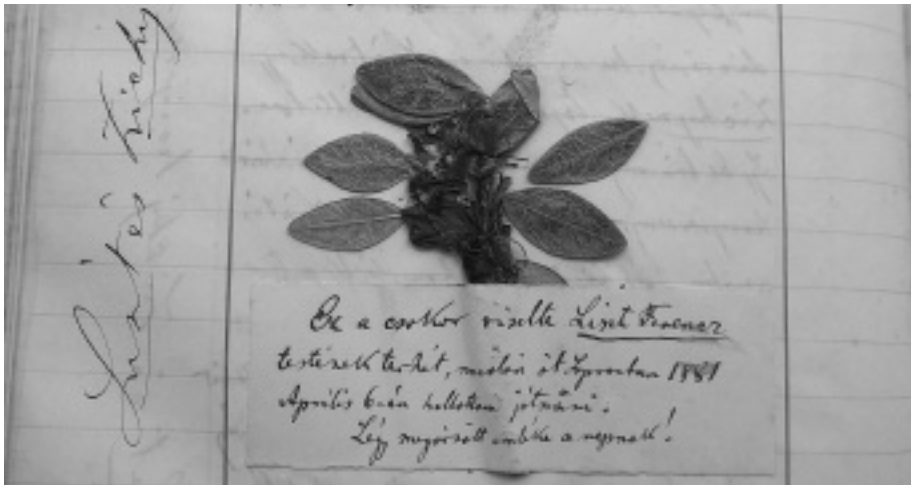 Ez a csokor viselte Liszt Ferencz
testének terhét, midőn őt Sopronban 1881
Április 6-án hallottam játszani.
Légy megőrzött emléke a napnak!
és Zichy